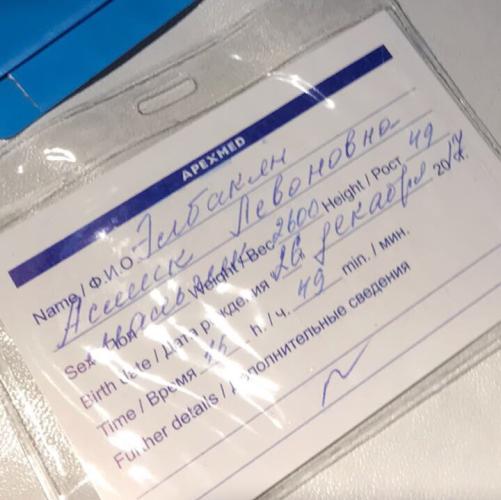 APEXMED
Name / Ф.И.О. Элбакян
Асмик Левоновна
Sex / Пол мальчик Weight / Вес 2600 Height / Рост 49
Birth date / Дата рождения 26 декабря 2017 г.
Time / Время 15 h. / ч. 49 min. / мин.
Further details / Дополнительные сведения